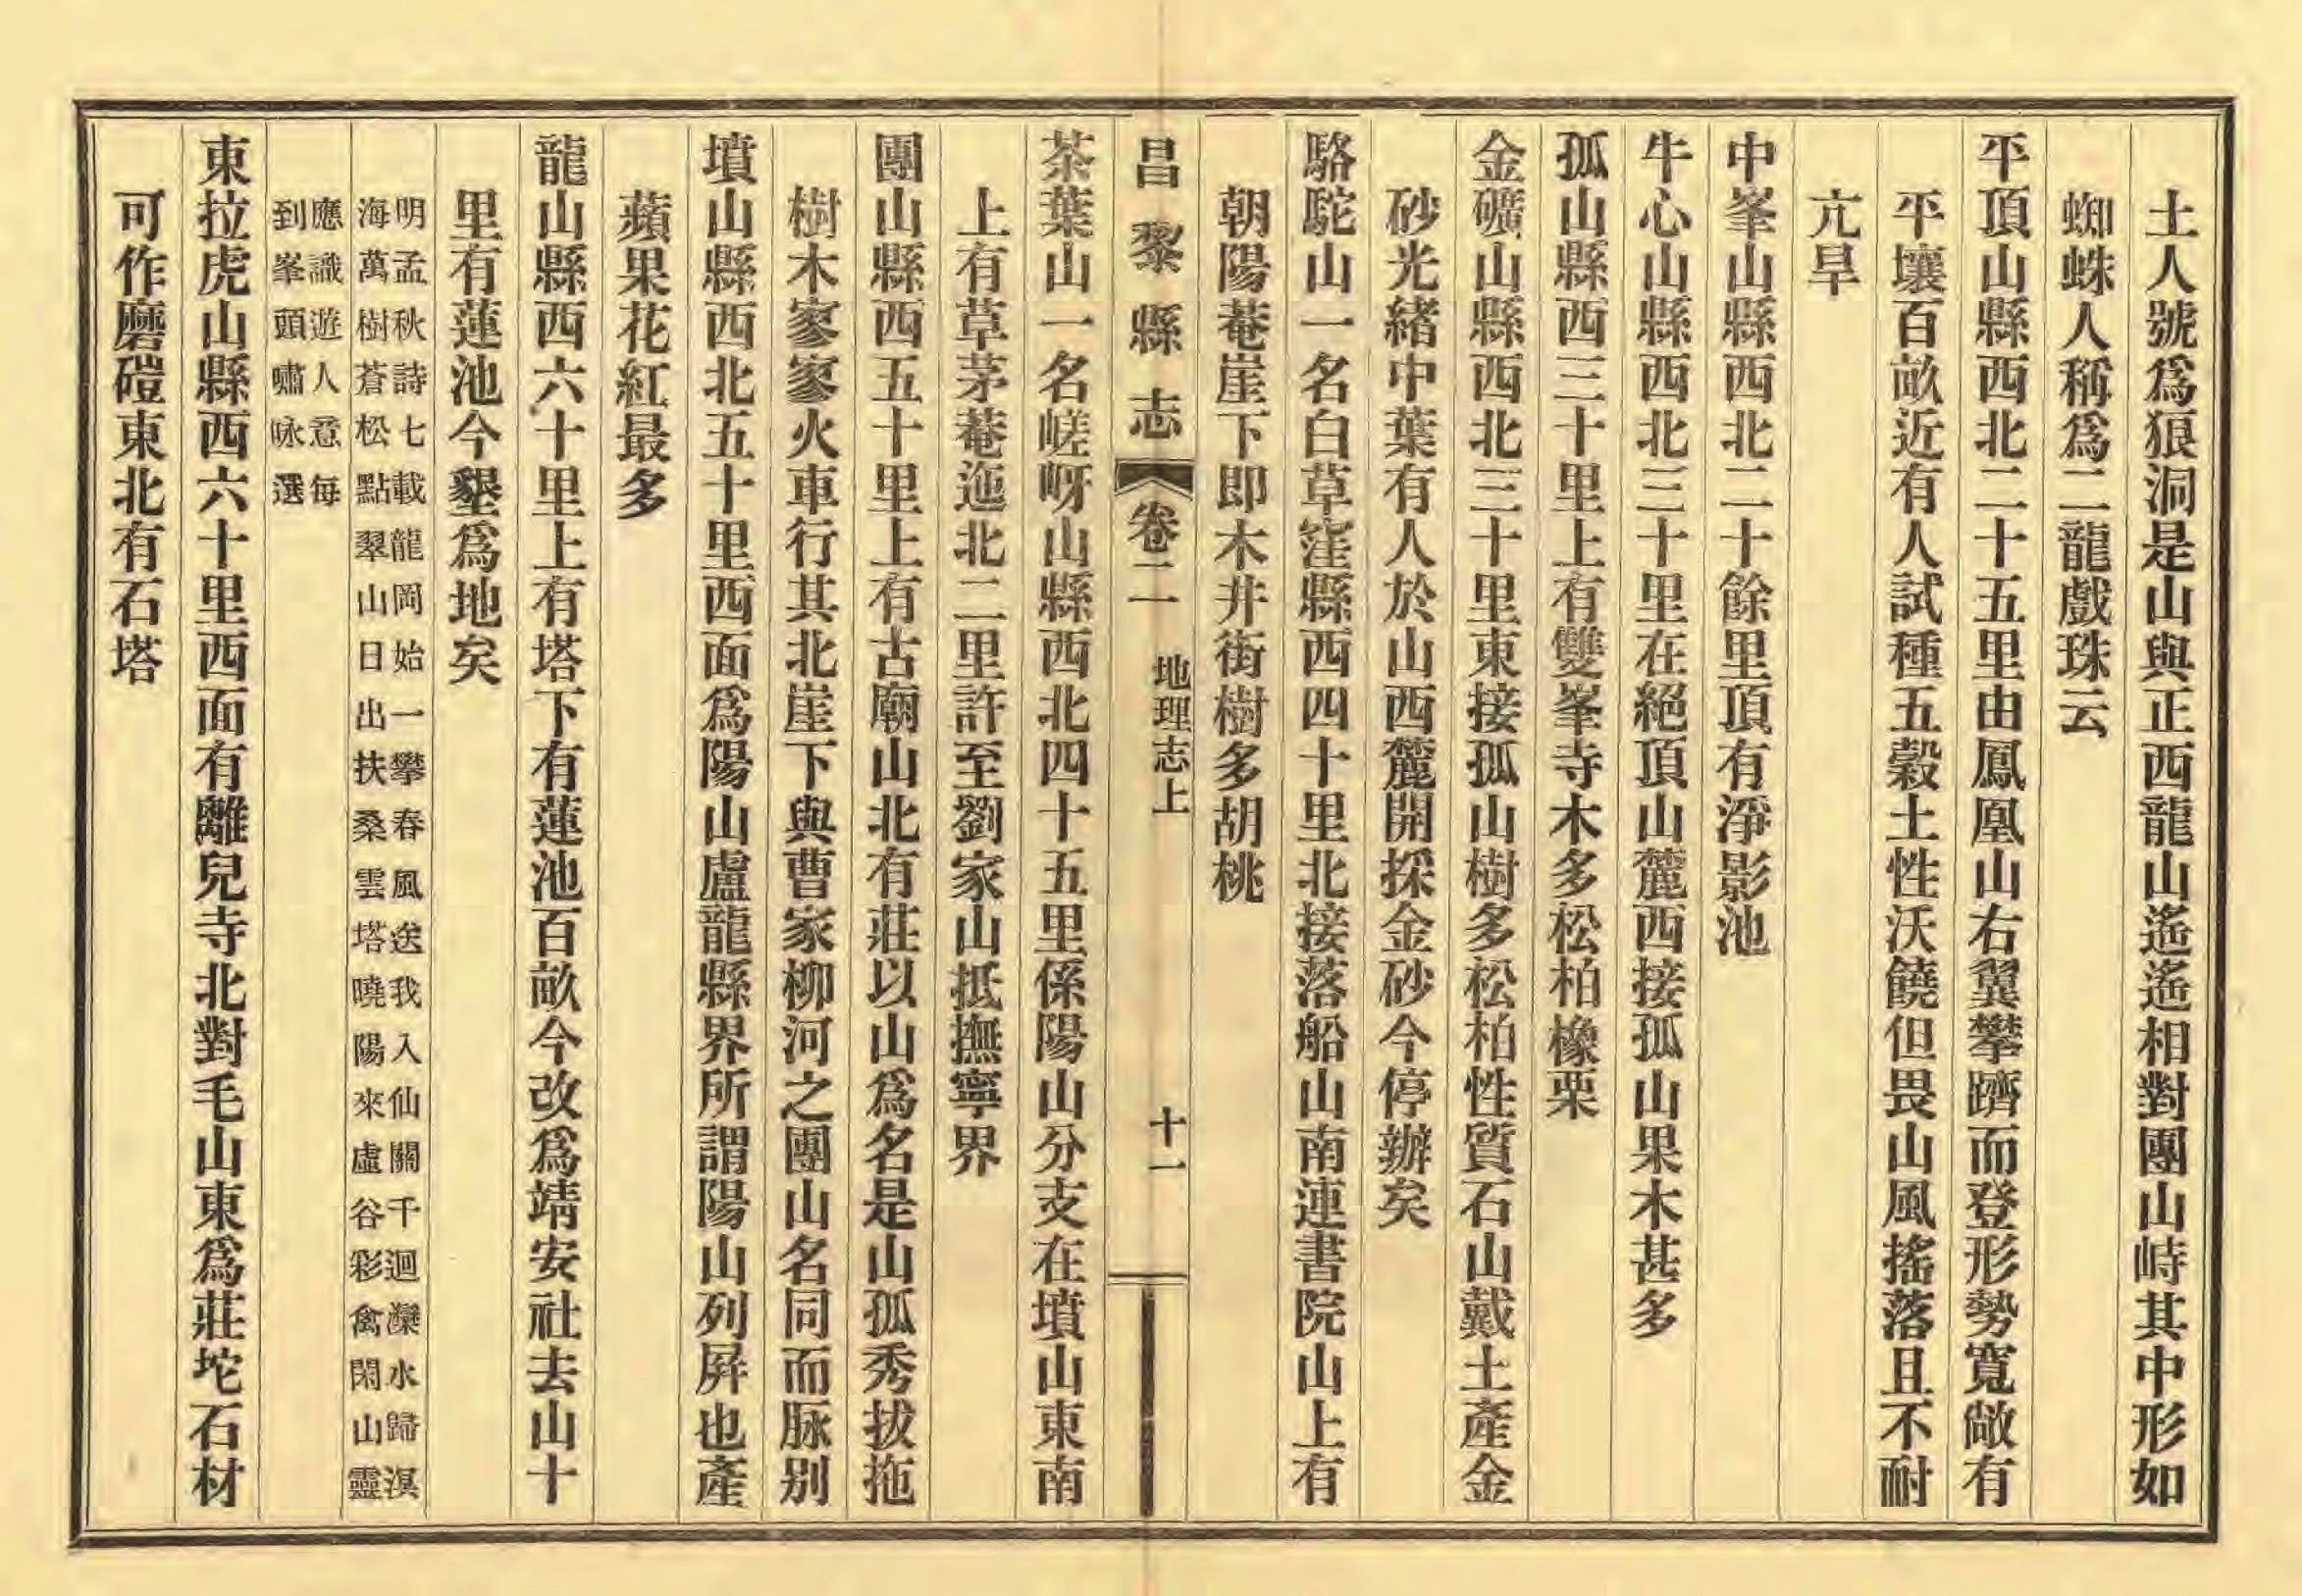 土人號爲狼洞是山與正西龍山遙遙相對團山峙其中形如
蜘蛛人稱爲二龍戲珠云
平頂山縣西北二十五里由鳳凰山右翼攀躋而登形勢寬敞有
平壤百畝近有人試種五穀土性沃饒但畏山風搖落且不耐
亢旱
中峯山縣西北二十餘里頂有淨影池
牛心山縣西北三十里在絕頂山麓西接孤山果木甚多
孤山縣西三十里上有雙峯寺木多松柏橡栗
金礦山縣西北三十里東接孤山樹多松柏性質石山戴土產金
砂光緒中葉有人於山西麓開採金砂今停辦矣
駱駝山一名白草窪縣西四十里北接落船山南連書院山上有
朝陽菴崖下即木井街樹多胡桃
昌黎縣志 卷二 地理志上 十一
茶葉山一名嵯岈山縣西北四十五里係陽山分支在墳山東南
上有草茅菴迤北二里許至劉家山抵撫寧界
團山縣西五十里上有古廟山北有莊以山爲名是山孤秀拔拖
樹木寥寥火車行其北崖下與曹家柳河之團山名同而脉别
墳山縣西北五十里西面爲陽山盧龍縣界所謂陽山列屏也產
蘋果花紅最多
龍山縣西六十里上有塔下有蓮池百畝今改爲靖安社去山十
里有蓮池今墾爲地矣
明孟秋詩七載龍岡始一攀春風送我入仙關千迴灤水歸溟
海萬樹蒼松點翠山日出扶桑雲塔曉陽來虛谷彩禽閑山靈
應識遊人意每
到峯頭嘯咏選
東拉虎山縣西六十里西面有離兒寺北對毛山東爲莊坨石材
可作磨磑東北有石塔